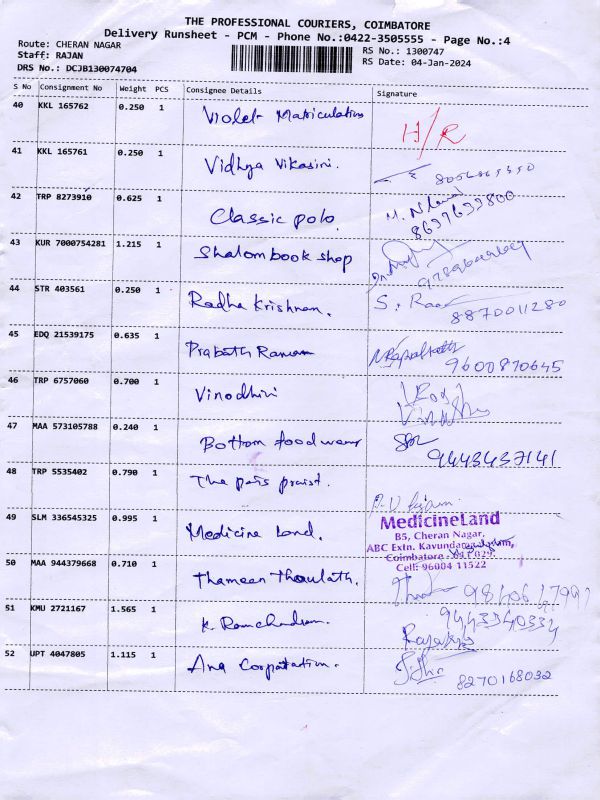 THE PROFESSIONAL COURIERS, COIMBATORE
Delivery Runsheet - PCM - Phone No.:0422-3505555 - Page No.:4
Route: CHERAN NAGAR
Staff: RAJAN
DRS No.: DCJB130074704
RS No.: 1300747
RS Date: 04-Jan-2024
S No Consignment No Weight PCS Consignee Details Signature
40 KKL 165762 0.250 1 Violet Matriculation H/R
41 KKL 165761 0.250 1 Vidhya Vikasini.
42 TRP 8273910 0.625 1 Classic polo. 8637633800
43 KUR 7000754281 1.215 1 Shalom book shop
44 STR 403561 0.250 1 Radha Krishnan. S. Raa 8870011280
45 EDQ 21539175 0.635 1 Prabath Ranam 9600870645
46 TRP 6757060 0.700 1 Vinodhini
47 MAA 573105788 0.240 1 Bottom food wear 9443437141
48 TRP 5535402 0.790 1 The pais
49 SLM 336545325 0.995 1 Medicine Land.
MedicineLand
B5, Cheran Nagar,
ABC Extn. Kavundam
Coimbatore - 641 029.
Cell: 96004 11522
50 MAA 944379668 0.710 1 Thameen Thoulath.
51 KMU 2721167 1.565 1 K. Ramchandran. 9443340334
52 UPT 4047805 1.115 1 Ana Corpatation. 8270168032